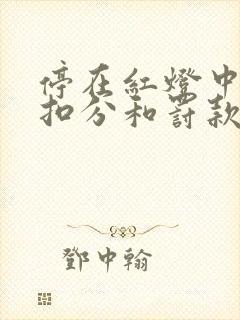 停在紅燈中
扣分和罰款
鄧中翰